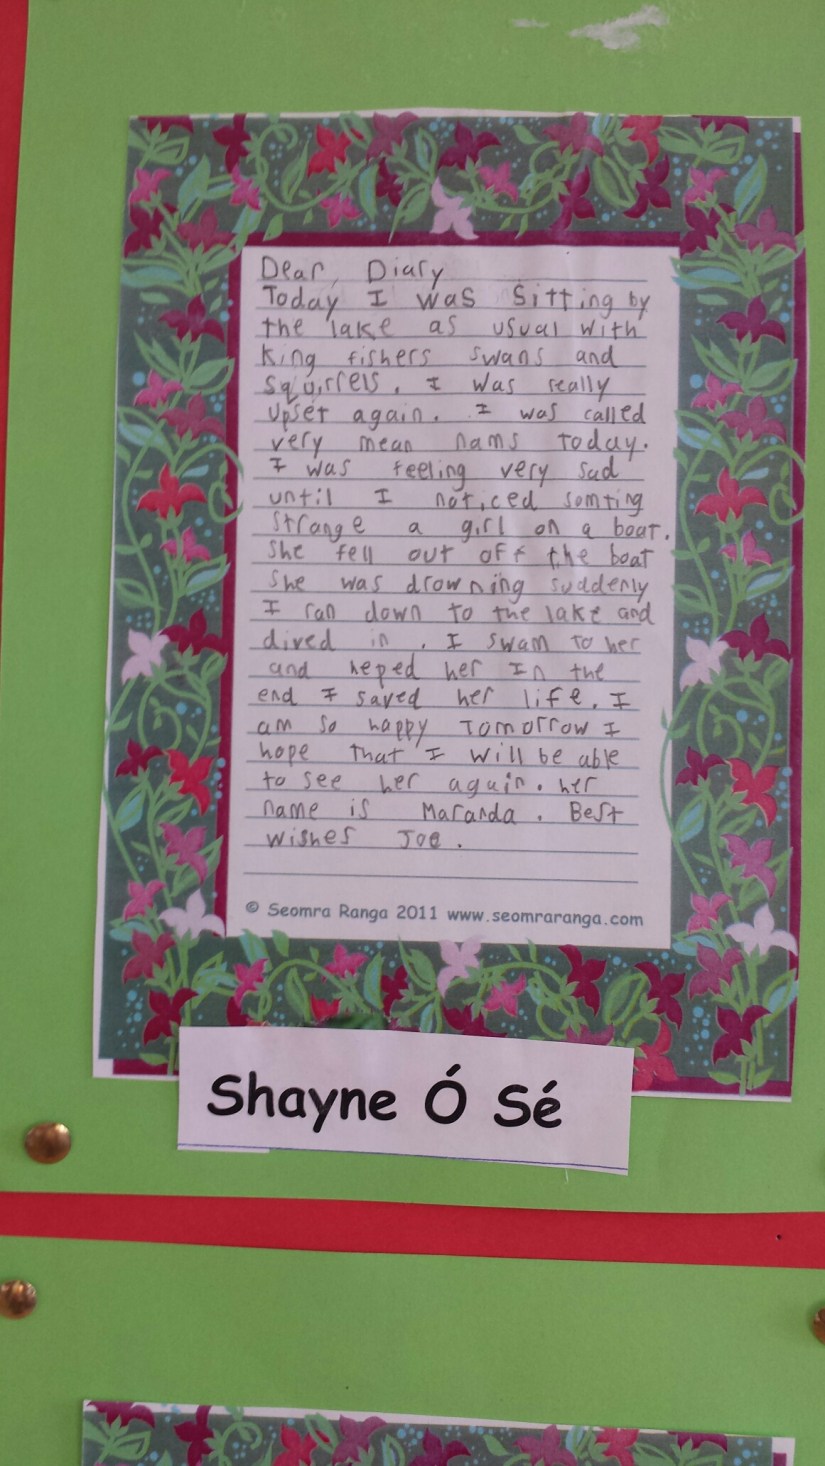 Dear, Diary
Today I was sitting by
the lake as usual with
king fishers swans and
squirrels. I was really
upset again. I was called
very mean nams today.
I was feeling very sad
until I noticed somting
strange a girl on a boat.
she fell out off the boat
she was drowning suddenly
I ran down to the lake and
dived in . I swam to her
and heped her In the
end I saved her life. I
am so happy Tomorrow I
hope that I will be able
to see her again. her
name is Maranda. Best
wishes Joe.
© Seomra Ranga 2011 www.seomraranga.com
Shayne Ó Sé